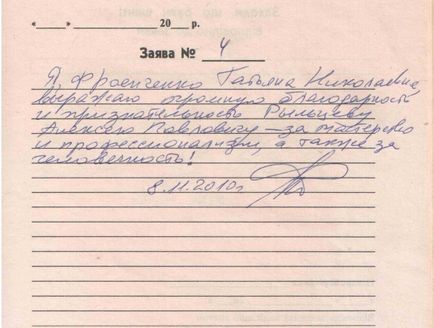 «____»____________20___р.
Заява № 4
Я, Фросиченко Татьяна Николаевна
выражаю огромную благодарность
и признательность Рыльцеву
Алексею Павловичу – за мастерство
и профессионализм, а также за
человечность!
8.11.2010г